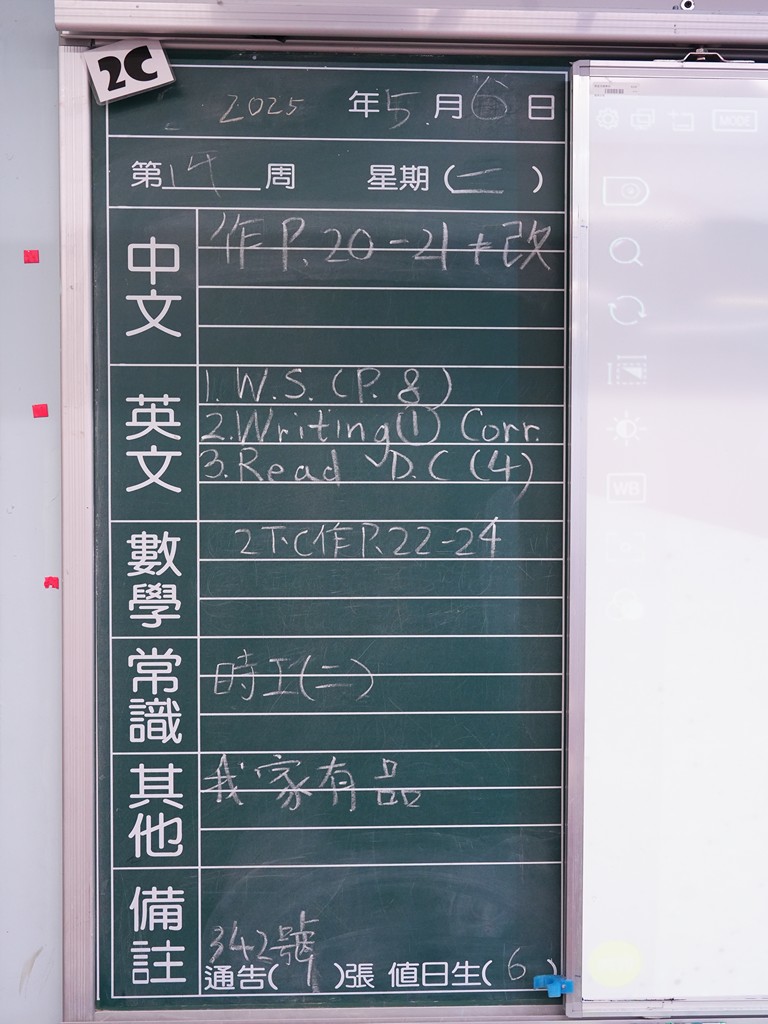 2C
2025 年 5 月 6 日
第 周 星期 (二)
中文
作 P.20-21 +改
英文
1. W.S. (P. 8)
2. Writing① Corr.
3. Read D.C (4)
數學
2下C作 P.22-24
常識
時工(二)
其他
我家有品
備註
342號
通告(1)張 值日生(6)
MODE
WB